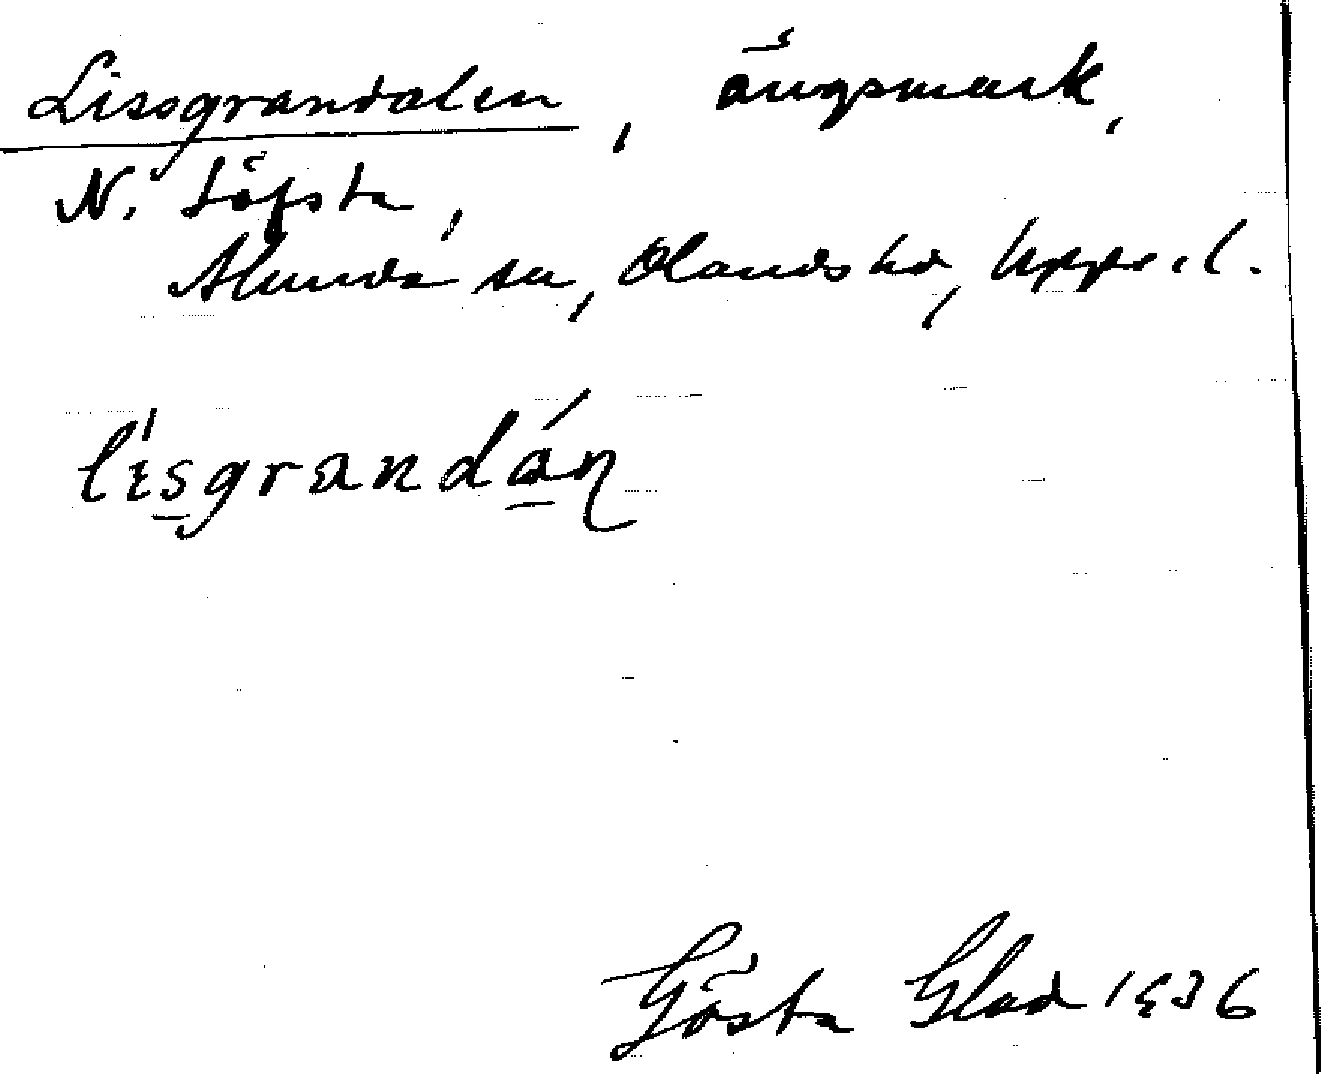 Lissgrandalen, ängsmark,
N. Löfsta,
Alunda sn, Olands hd, Uppl.
lisgrandán
Gösta Glad 1936